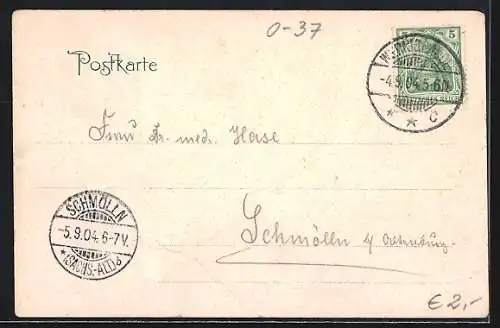 0-37
Postkarte
5
-4.9.04.5-6N.
* * c
Frau Dr. med. Hase
SCHMÖLLN
-5.9.04.6-7V.
*(SACHS.-ALT.)a
Schmölln
€ 2,-